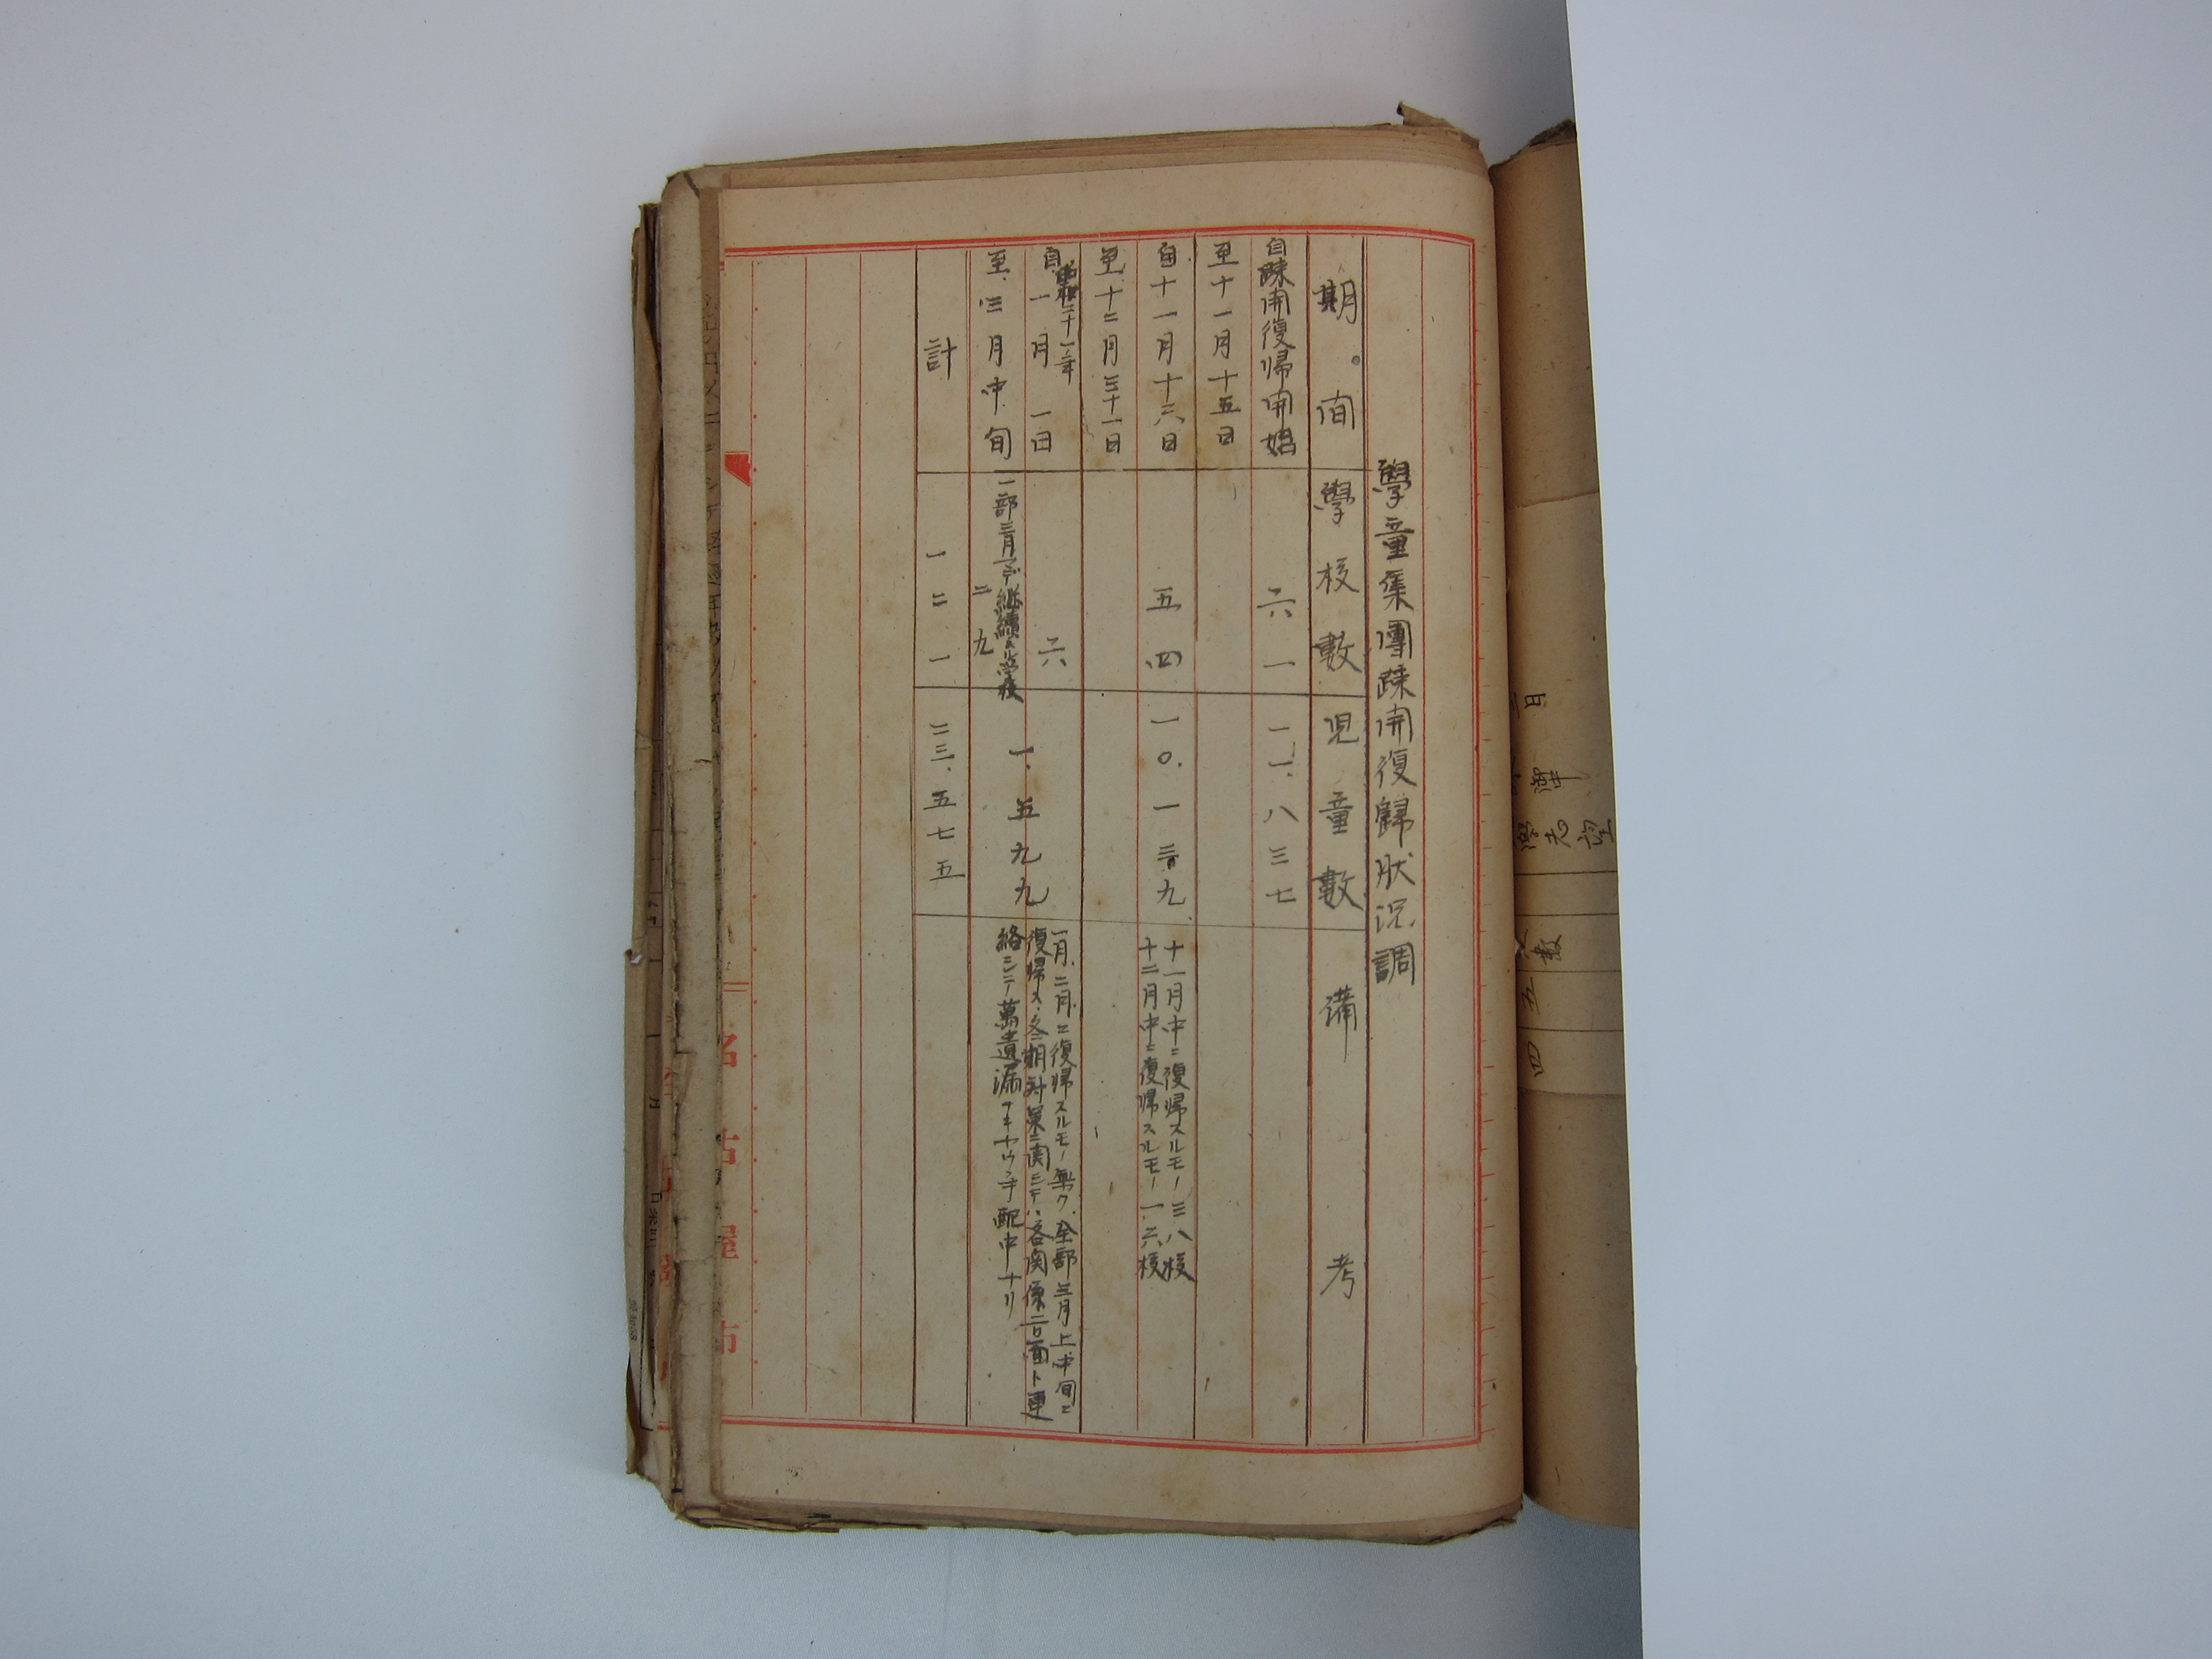 學童集團疎開復歸狀況調
期間 學校數 児童數 備考
自疎開復帰開始 六一 一一、八三七
至十一月十五日
自十一月十六日 五四 一〇.一三九 十一月中ニ復帰スルモノ三八校
十二月中ニ復帰スルモノ一六校
至十二月三十一日
昭和二十一年
自一月一日 六 一、五九九 一月.二月ニ復帰スルモノ無ク.全部三月上中旬ニ
復帰ス、冬期対策ニ関シテハ各関係方面ト連
絡シテ萬遺漏ナキヤウ手配中ナリ
至三月中旬 一部三月マデ継続スル学校
二九
計 一二一 二三、五七五
名古屋市